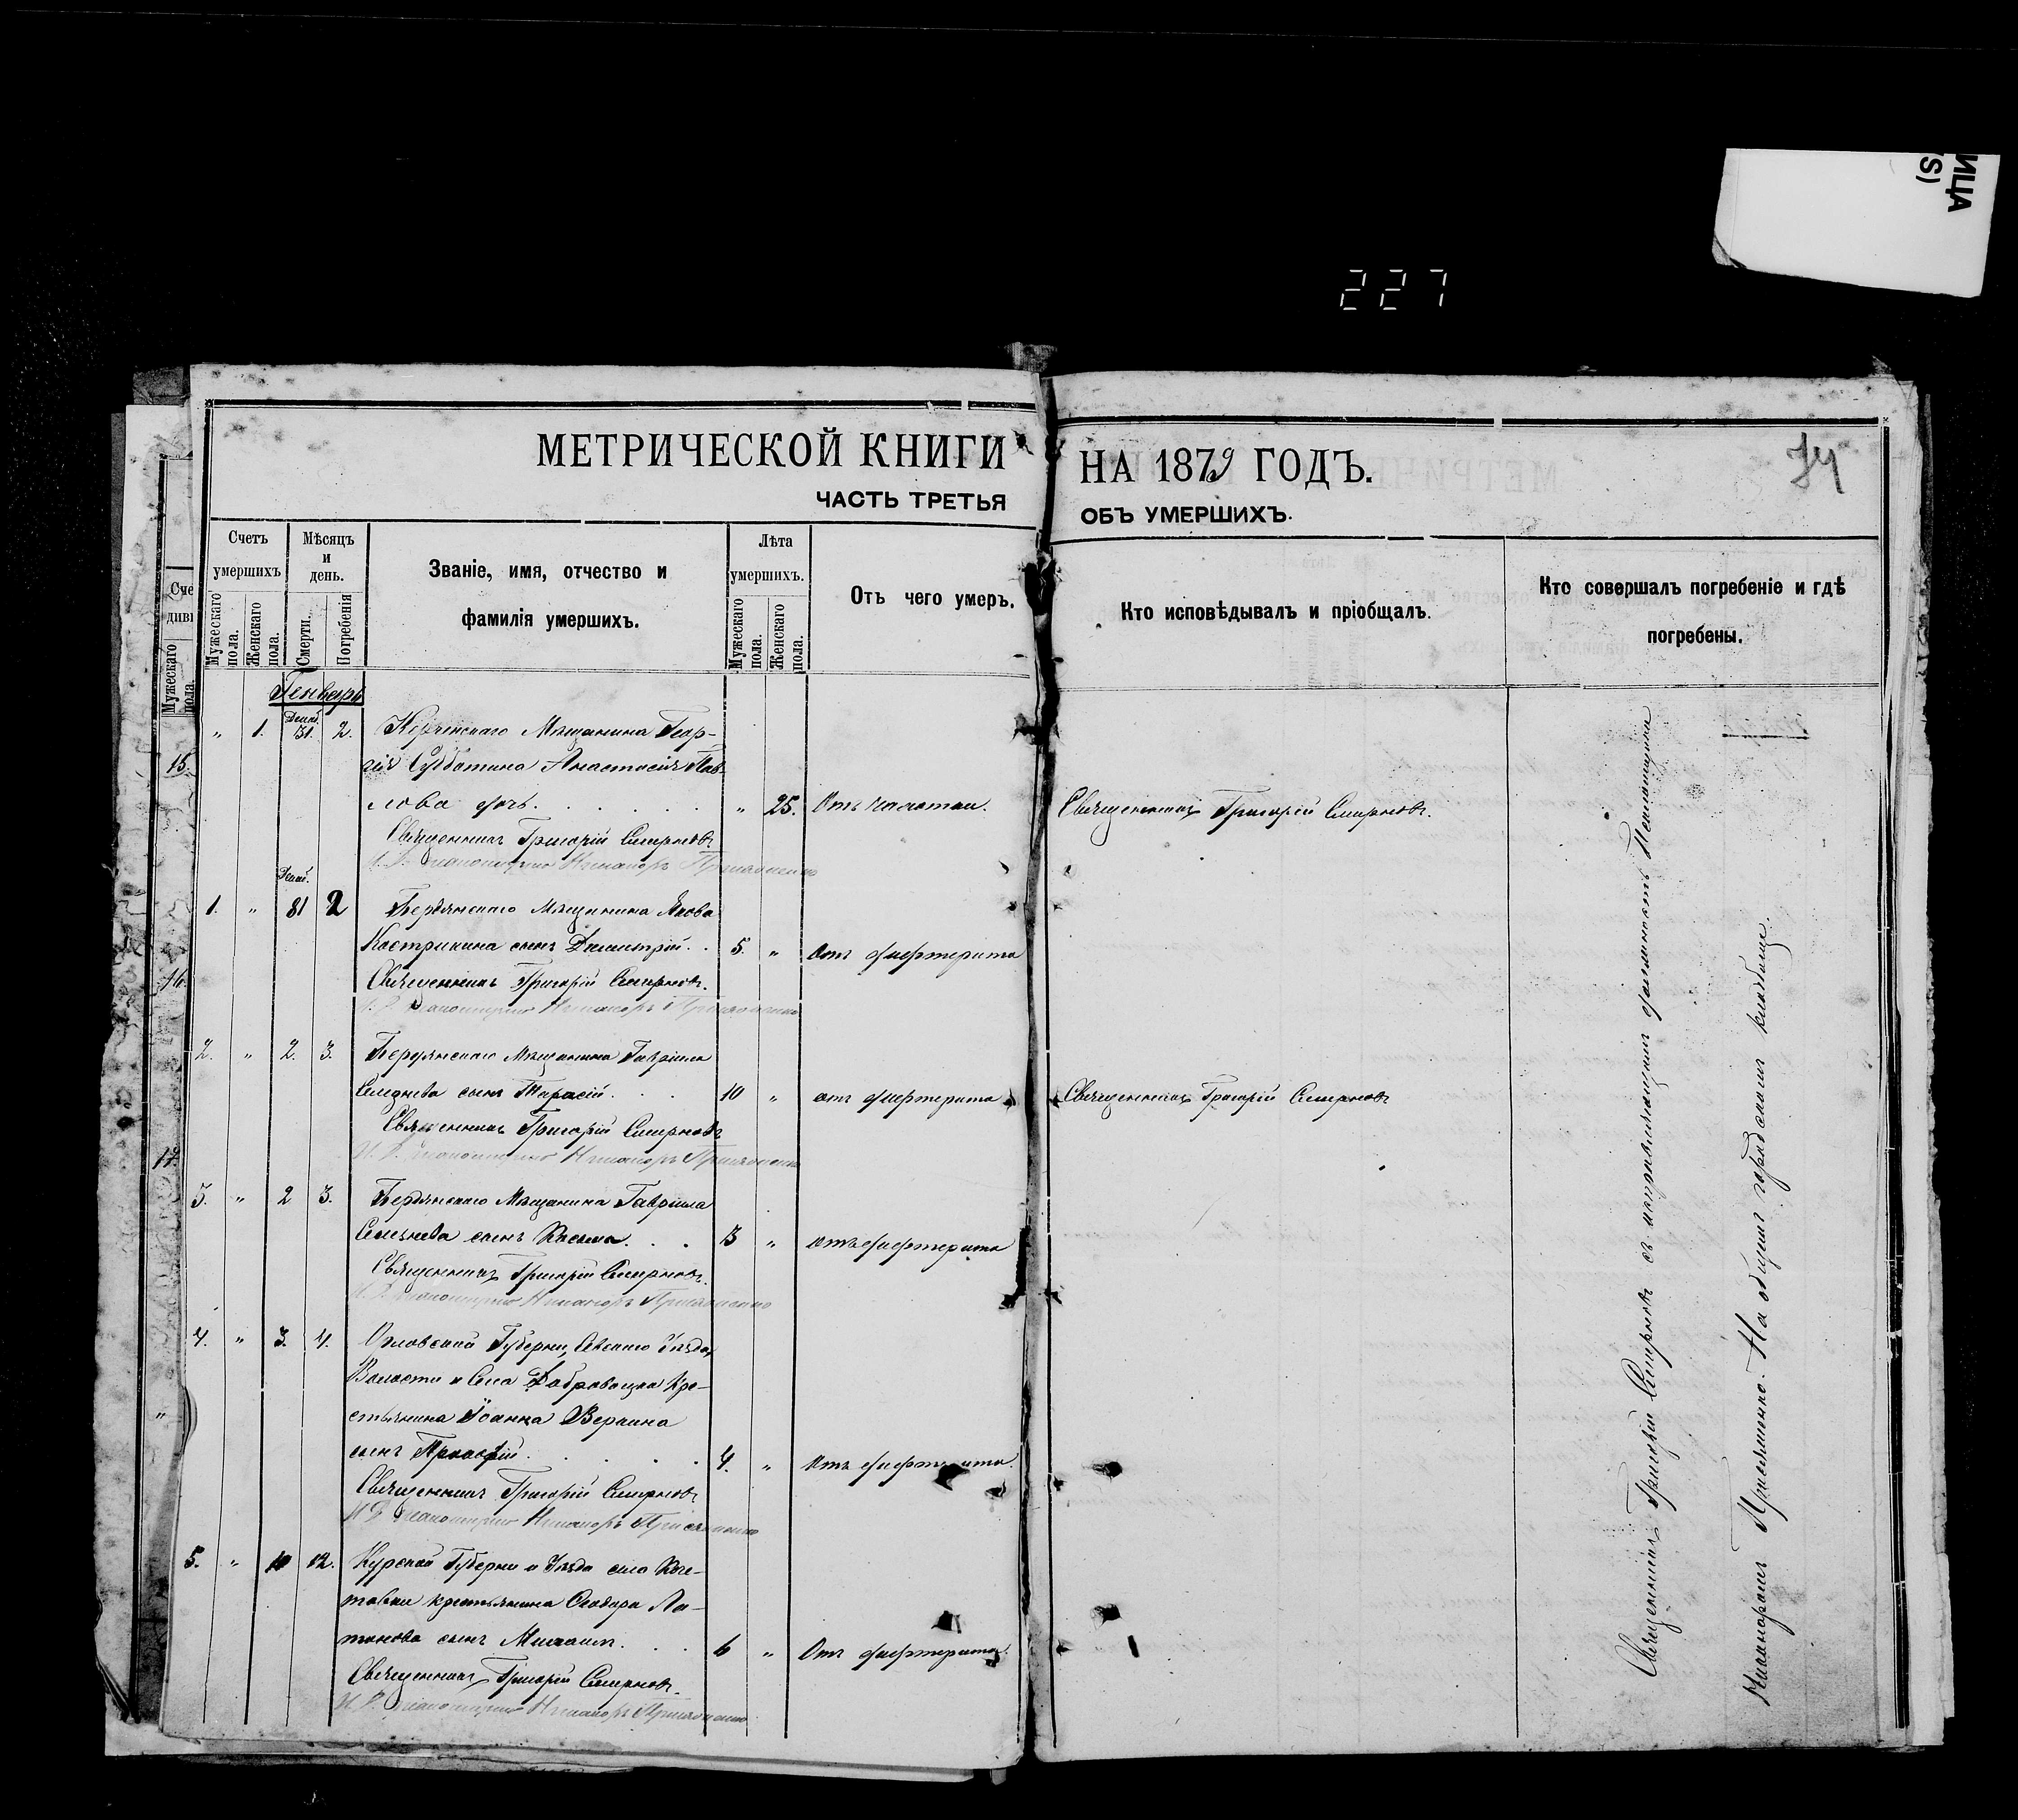 ИЦА
S)
227
МЕТРИЧЕСКОЙ КНИГИ НА 1879 ГОДЪ.
74
ЧАСТЬ ТРЕТЬЯ ОБЪ УМЕРШИХЪ.
Счетъ умершихъ
Мужескаго пола.
Женскаго пола.
Мѣсяцъ и день.
Смерти.
Погребенія
Званіе, имя, отчество и
фамилія умершихъ.
Лѣта умершихъ.
Мужескаго пола.
Женскаго пола.
Отъ чего умеръ.
Кто исповѣдывалъ и пріобщалъ.
Кто совершалъ погребеніе и гдѣ
погребены.
Сче
диві
Мужескаго пола.
15.
16.
17.
Генварь
" 1. Декаб. 31. 2. Керченскаго Мѣщанина Геор-
гія Субботина Анастасія Пав-
лова дочь. " 25. Отъ чахотки. Священникъ Григорій Смирновъ.
Священникъ Григорій Смирновъ
И. Д. Псаломщика Никаноръ Присяженко
1. " Декаб. 31 2 Бердянскаго Мѣщанина Якова
Кострикина сынъ Димитрій. 5. " Отъ дифтерита
Священникъ Григорій Смирновъ.
И. Д. Псаломщика Никаноръ Присяженко
2. " 2. 3. Бердянскаго Мѣщанина Гавріила
сынъ Тарасій. 10 " отъ дифтерита Священникъ Григорій Смирновъ
Священникъ Григорій Смирновъ
И. Д. Псаломщика Никаноръ Присяженко
3. " 2 3. Бердянскаго Мѣщанина Гавріила
сынъ Косьма. 13 " отъ дифтерита
Священникъ Григорій Смирновъ.
И. Д. Псаломщика Никаноръ Присяженко
4. " 3. 4. Орловской Губерніи, Сѣвскаго Уѣзда,
Волости и Села Доброводка Кре-
стьянина Іоанна
сынъ Прокофій. 4. " Отъ дифтерита.
Священникъ Григорій Смирновъ
И. Д. Псаломщика Никаноръ Присяженко
5. " 10 12. Курской Губерніи и Уѣзда села Коче-
товки крестьянина Ѳеодора Ло-
сынъ Михаилъ. 6 " Отъ дифтерита.
Священникъ Григорій Смирновъ.
И. Д. Псаломщика Никаноръ Присяженко
Священникъ Григорій Смирновъ съ исправляющимъ должность Псаломщика
Никаноромъ Присяженко. На общемъ городскомъ кладбище.